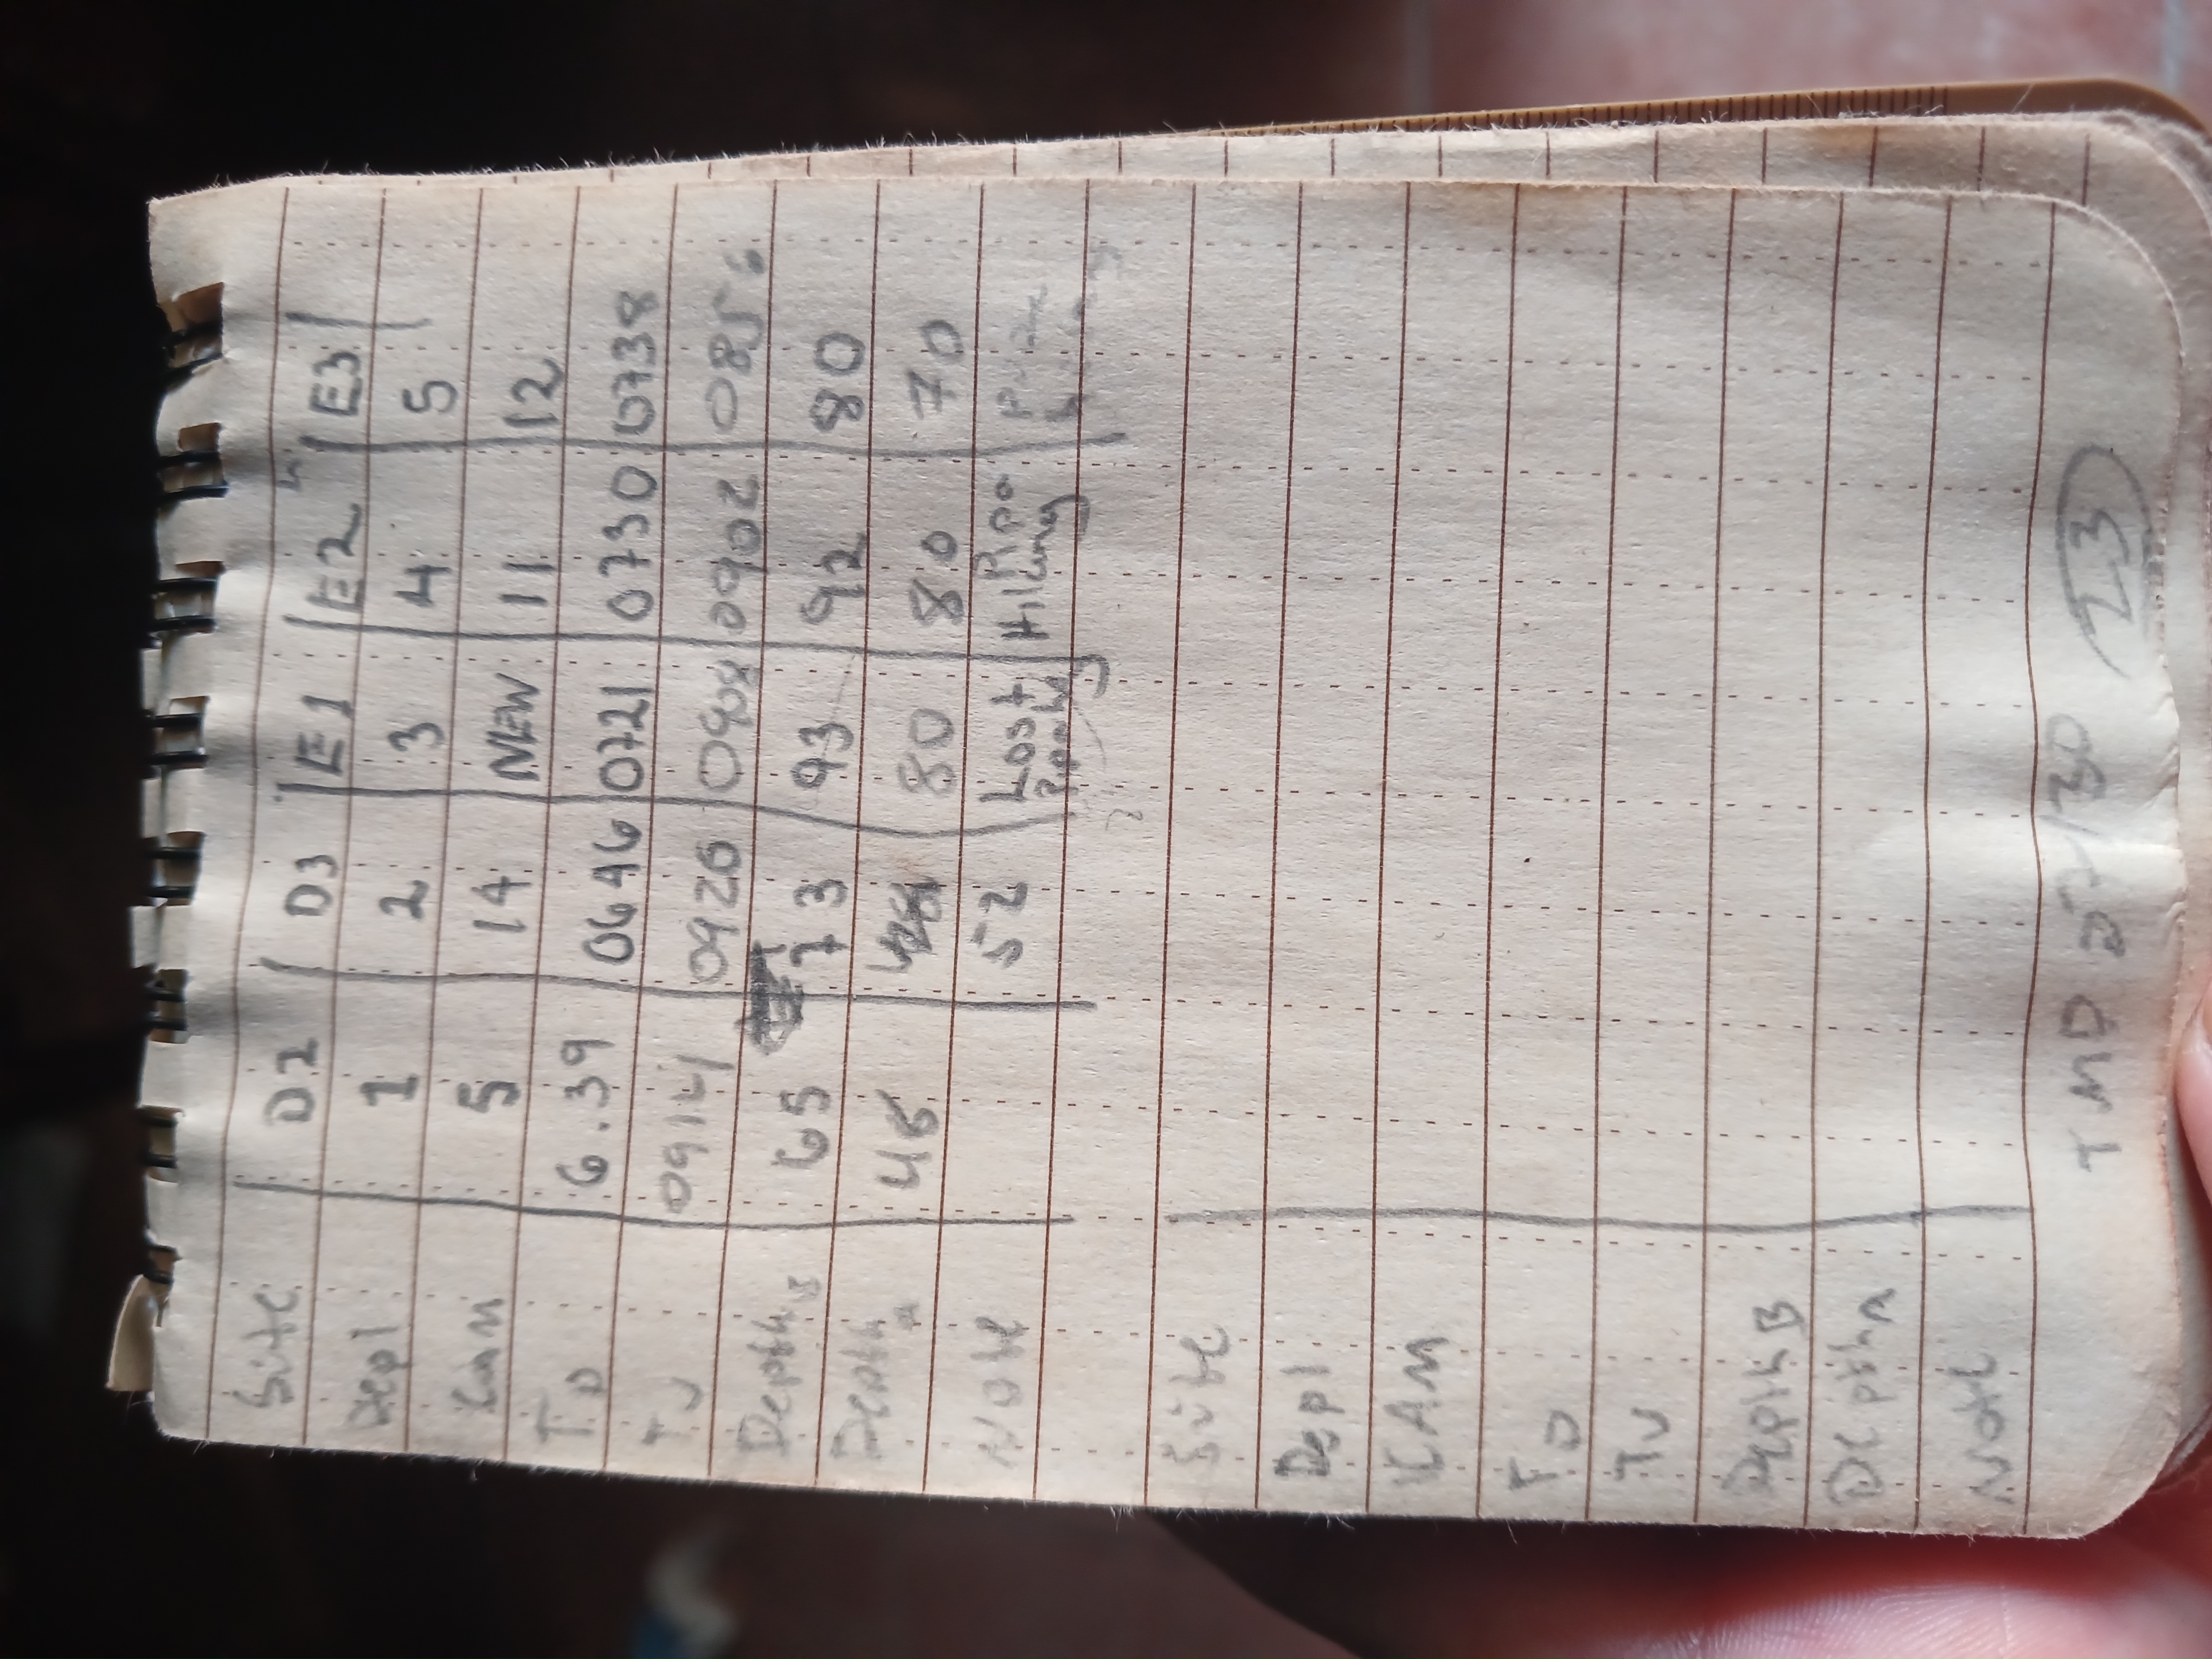 Site D2 D3 E1 E2 E3
Depl 1 2 3 4 5
Cam 5 14 NEW 11 12
TD 6.39 0646 0721 0730 0738
TU 0914 0920 0908 0902 0856
Depth B 65 73 93 92 80
Depth A 48 80 80 70
Note 52 Lost Pipa Hilang
Site
Depl
CAM
TD
TU
Depth B
Depth A
Note
TMD 07/30 23